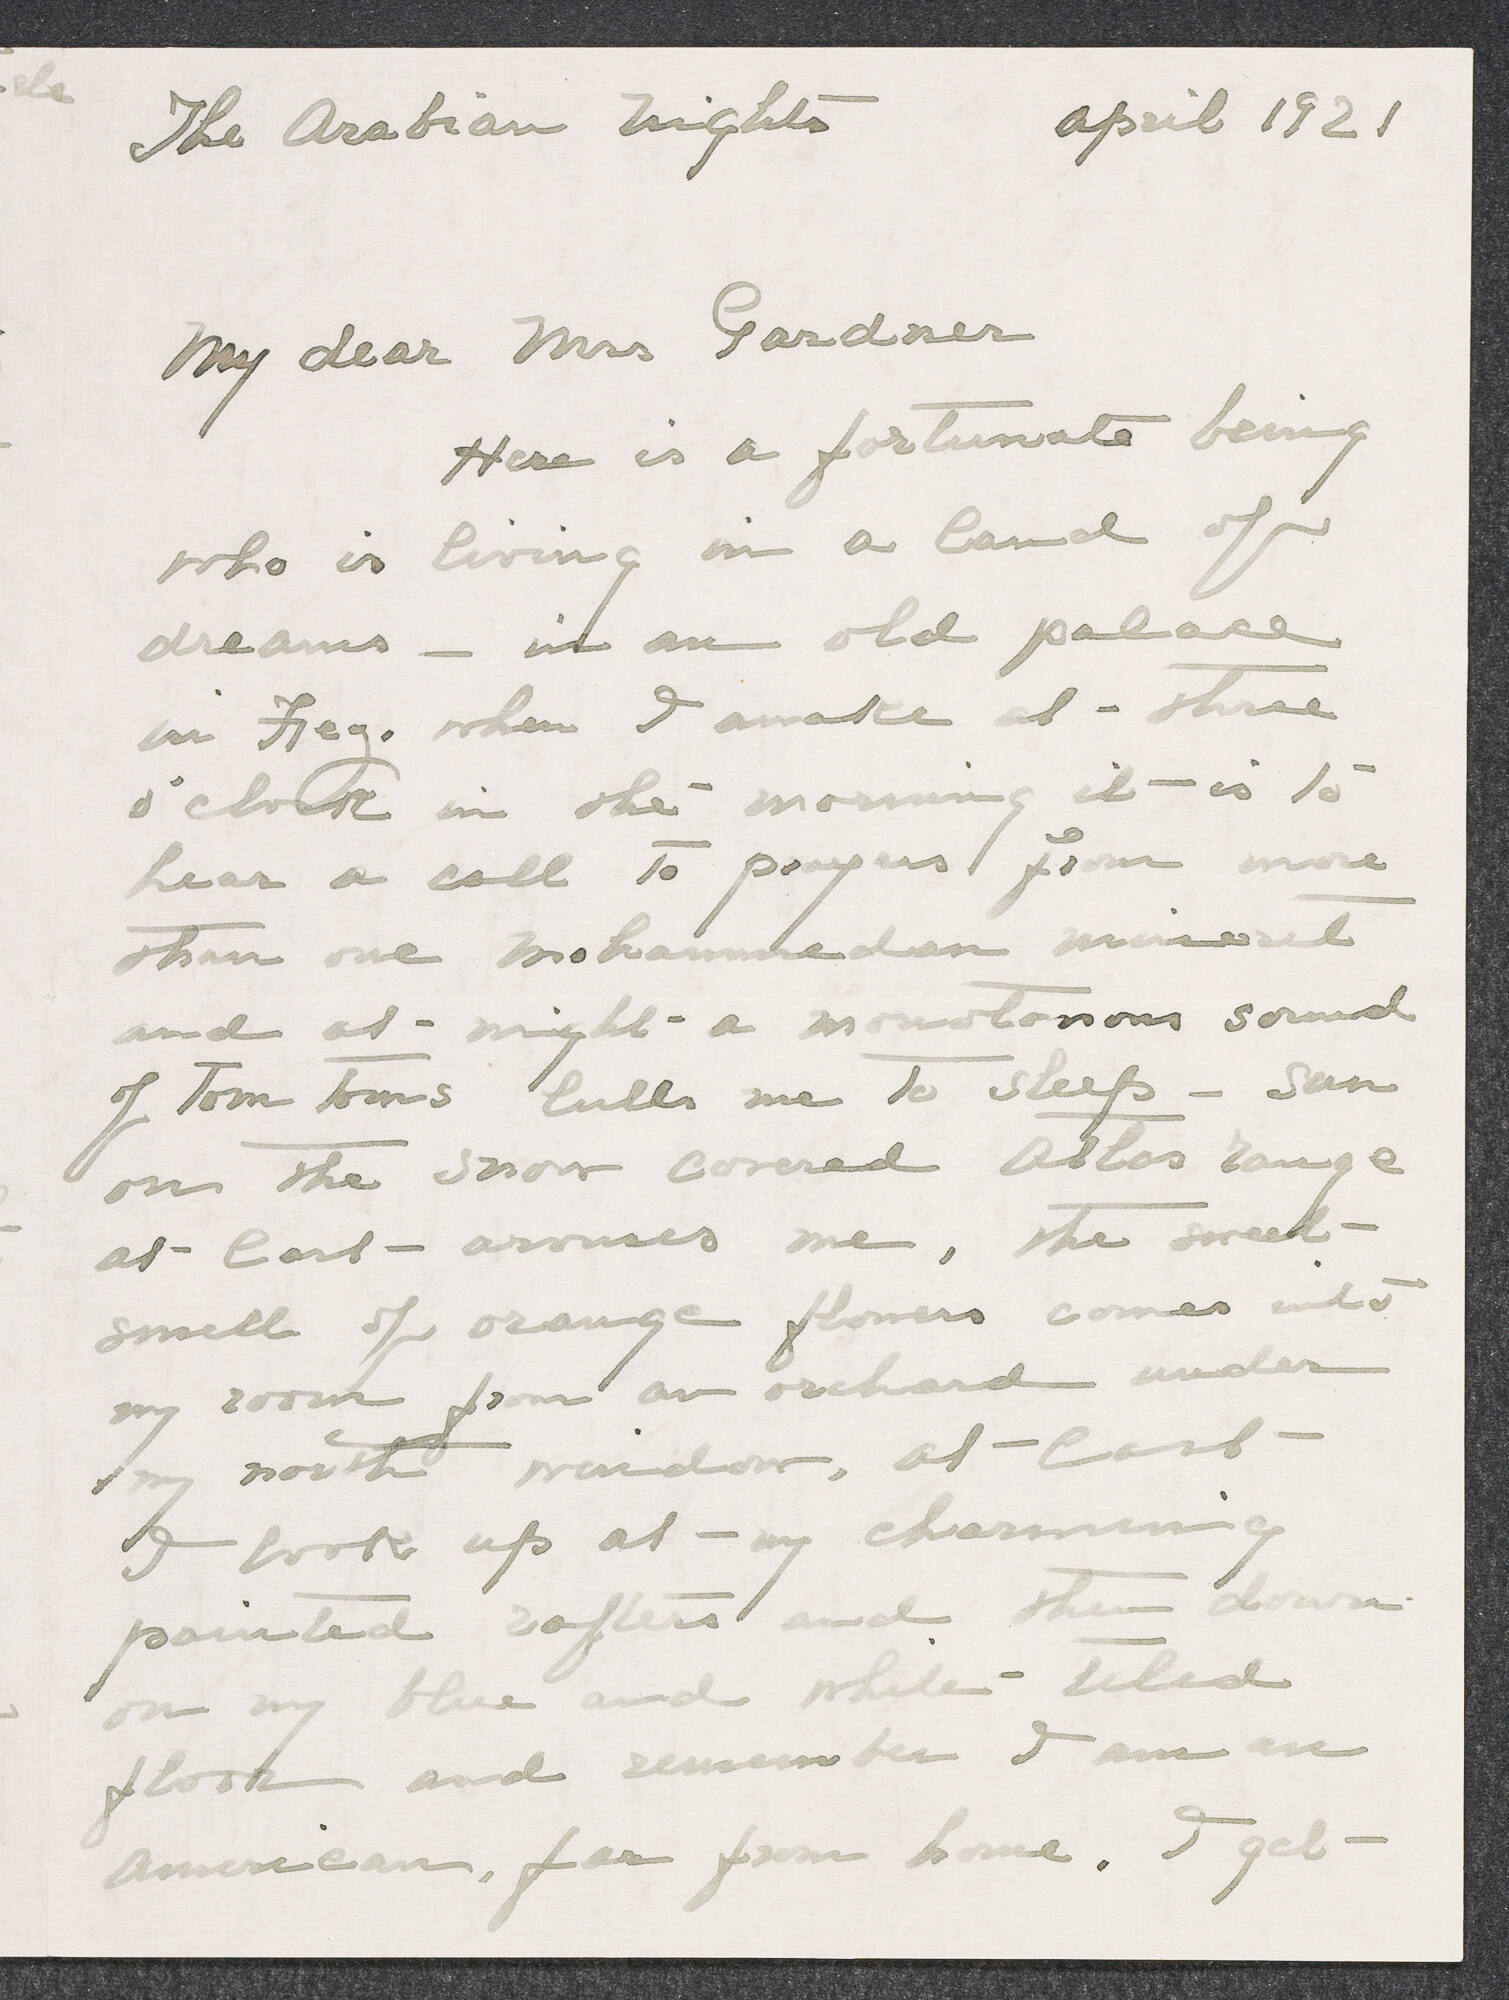 The Arabian Nights april 1921
My dear Mrs Gardner
Here is a fortunate being
who is living in a land of
dreams — in an old palace
in Fez. when I awake at three
o'clock in the morning it is to
hear a call to prayers from more
than one Mohammedan minaret
and at night a monotonous sound
of Tom Toms lulls me to sleep — Sun
on the snow covered Atlas range
at last arouses me, the sweet
smell of orange flowers comes into
my room from an orchard under
my north window, at last
I look up at my charming
painted rafters and then down
on my blue and white tiled
floor and remember I am an
American, far from home. I get